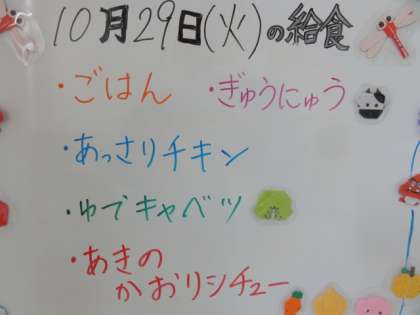 10月29日(火)の給食
・ごはん ・ぎゅうにゅう
・あっさりチキン
・ゆでキャベツ
・あきの
かおりシチュー